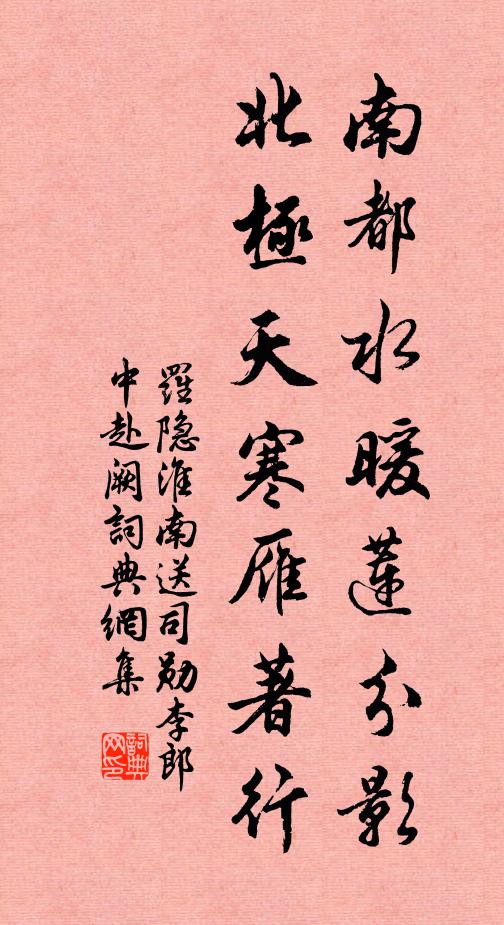 南都水暖蓮分影
北極天寒雁著行
羅隐淮南送司勛李郎
中赴阙詞典網集
詞典网印